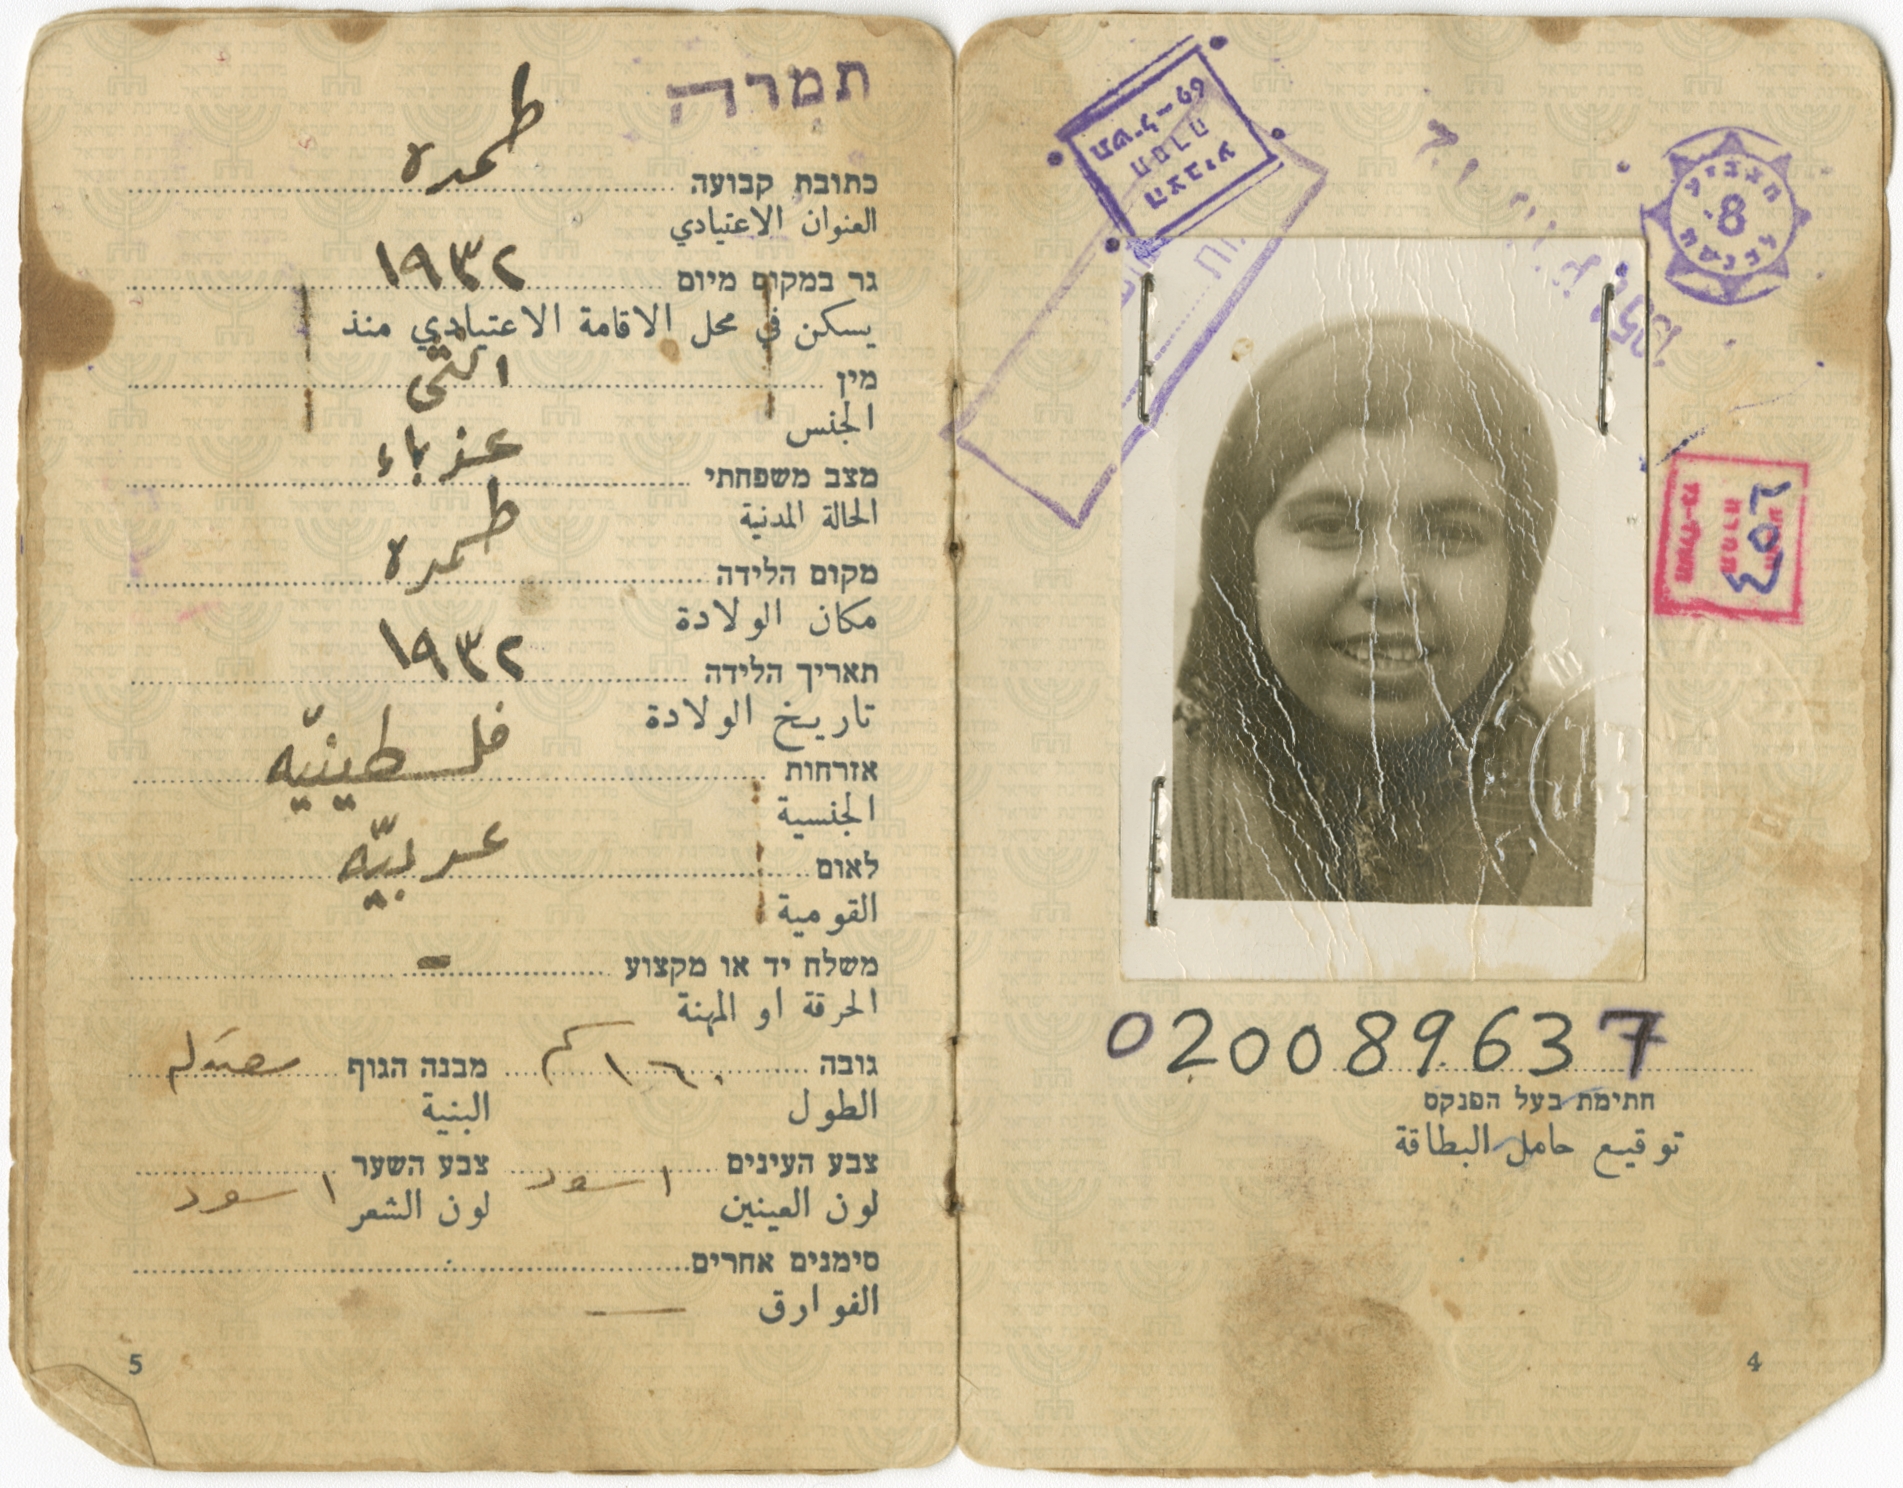 תמרה
طمره
כתובת קבועה
العنوان الاعتيادي
גר במקום מיום ١٩٣٢
يسكن في محل الاقامة الاعتيادي منذ
מין انثى
الجنس
מצב משפחתי عزباء
الحالة المدنية
מקום הלידה طمره
مكان الولادة
תאריך הלידה ١٩٣٢
تاريخ الولادة
אזרחות فلسطينيّه
الجنسية
לאום عربيّه
القومية
משלח יד או מקצוע -
الحرفة او المهنة
גובה ١٦٠ מבנה הגוף
الطول البنية
צבע העינים اسود צבע השער اسود
لون العينين لون الشعر
סימנים אחרים
الفوارق —
5
הצביע
תמרה
תש״ל-69
הצביע
8
1951
תמרה
203
020089637
חתימת בעל הפנקס
توقيع حامل البطاقة
4